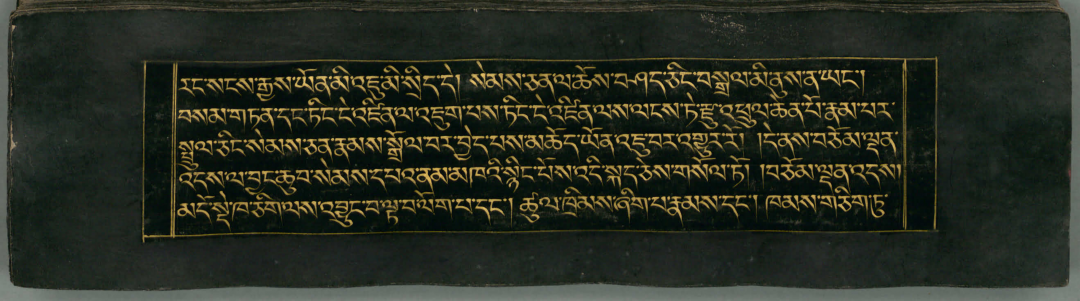 རང་སངས་རྒྱས་ཡོན་མི་འཇུ་མི་སྲིད་དེ། སེམས་ཅན་ལ་ཆོས་བཤད་ཅིང་བསྒྲལ་མི་ནུས་ན་ཡང་།
བསམ་གཏན་དང་ཏིང་ངེ་འཛིན་ལ་འཇུག་པས་ཏིང་ངེ་འཛིན་ལས་ལངས་ཏེ་རྫུ་འཕྲུལ་ཆེན་པོ་རྣམ་པར་
སྤྲུལ་ཅིང་སེམས་ཅན་རྣམས་སྒྲོལ་བར་བྱེད་པས་མཆོད་ཡོན་འཇུ་བར་འགྱུར་རོ། །དེ་ནས་བཅོམ་ལྡན་
འདས་ལ་བྱང་ཆུབ་སེམས་དཔའ་ནམ་མཁའི་སྙིང་པོས་འདི་སྐད་ཅེས་གསོལ་ཏོ། །བཅོམ་ལྡན་འདས།
མདོ་སྡེ་ཁ་ཅིག་ལས་འབྱུང་བ་ལྟ་བ་ལོག་པ་དང་། ཚུལ་ཁྲིམས་ཞིག་པ་རྣམས་དང་། ཁམས་གཅིག་ཏུ་